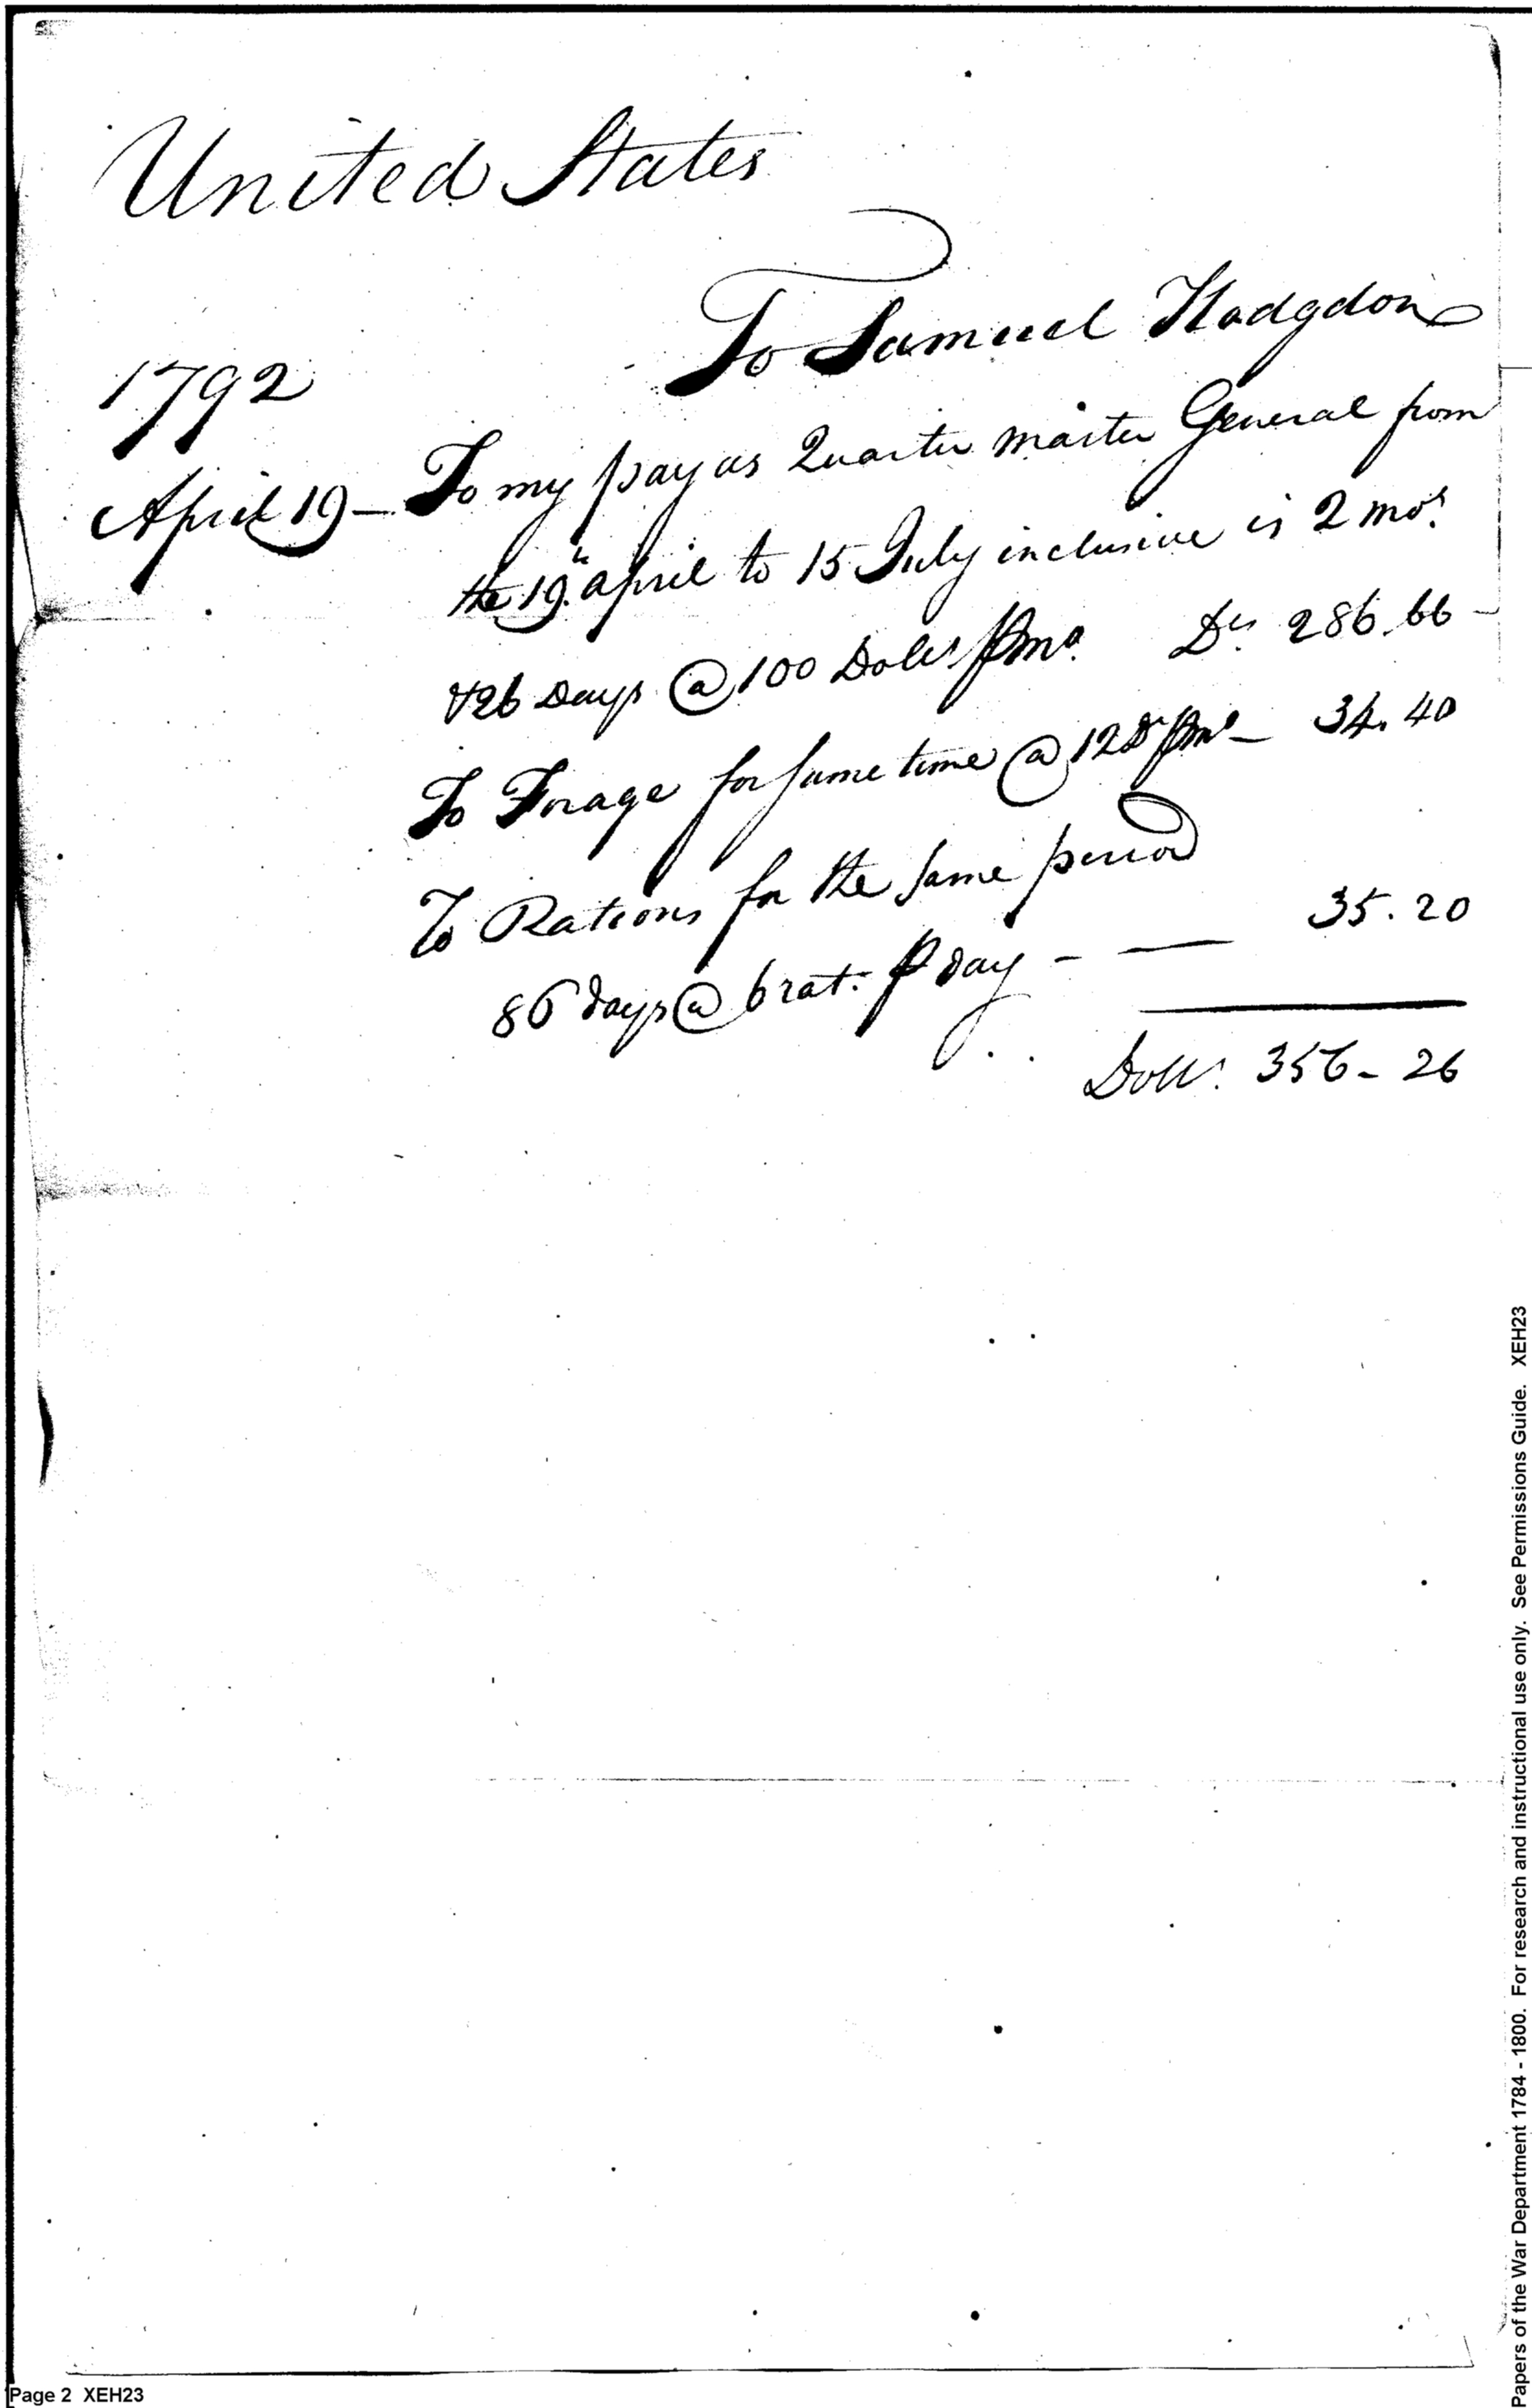 United States
To Samuel Hodgdon
1792
April 19 - To my pay as Quarter master General from
the 19th april to 15 July inclusive is 2 mos.
& 26 Days @ 100 Dolls ⅌ mo. Drs. 286.66 -
To Forage for same time @ 12 Dr ⅌ mo - 34.40
To Rations for the same period
86 days @ 6 rat: ⅌ day - — 35.20
Dolls. 356 - 26
Papers of the War Department 1784 - 1800. For research and instructional use only. See Permissions Guide. XEH23
Page 2 XEH23